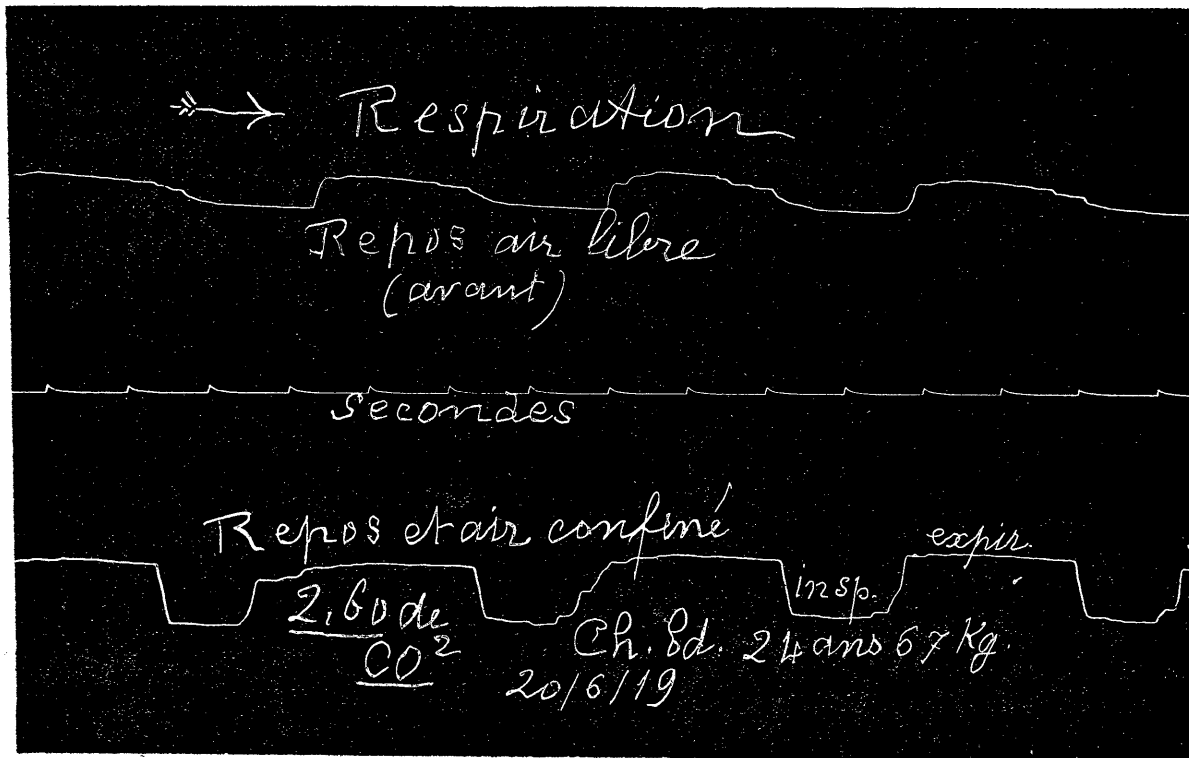 Respiration
Repos air libre
(avant)
Secondes
Repos et air confiné
expir.
insp.
2,60 de
CO²
Ch. Bd. 24 ans 67 Kg.
20/6/19